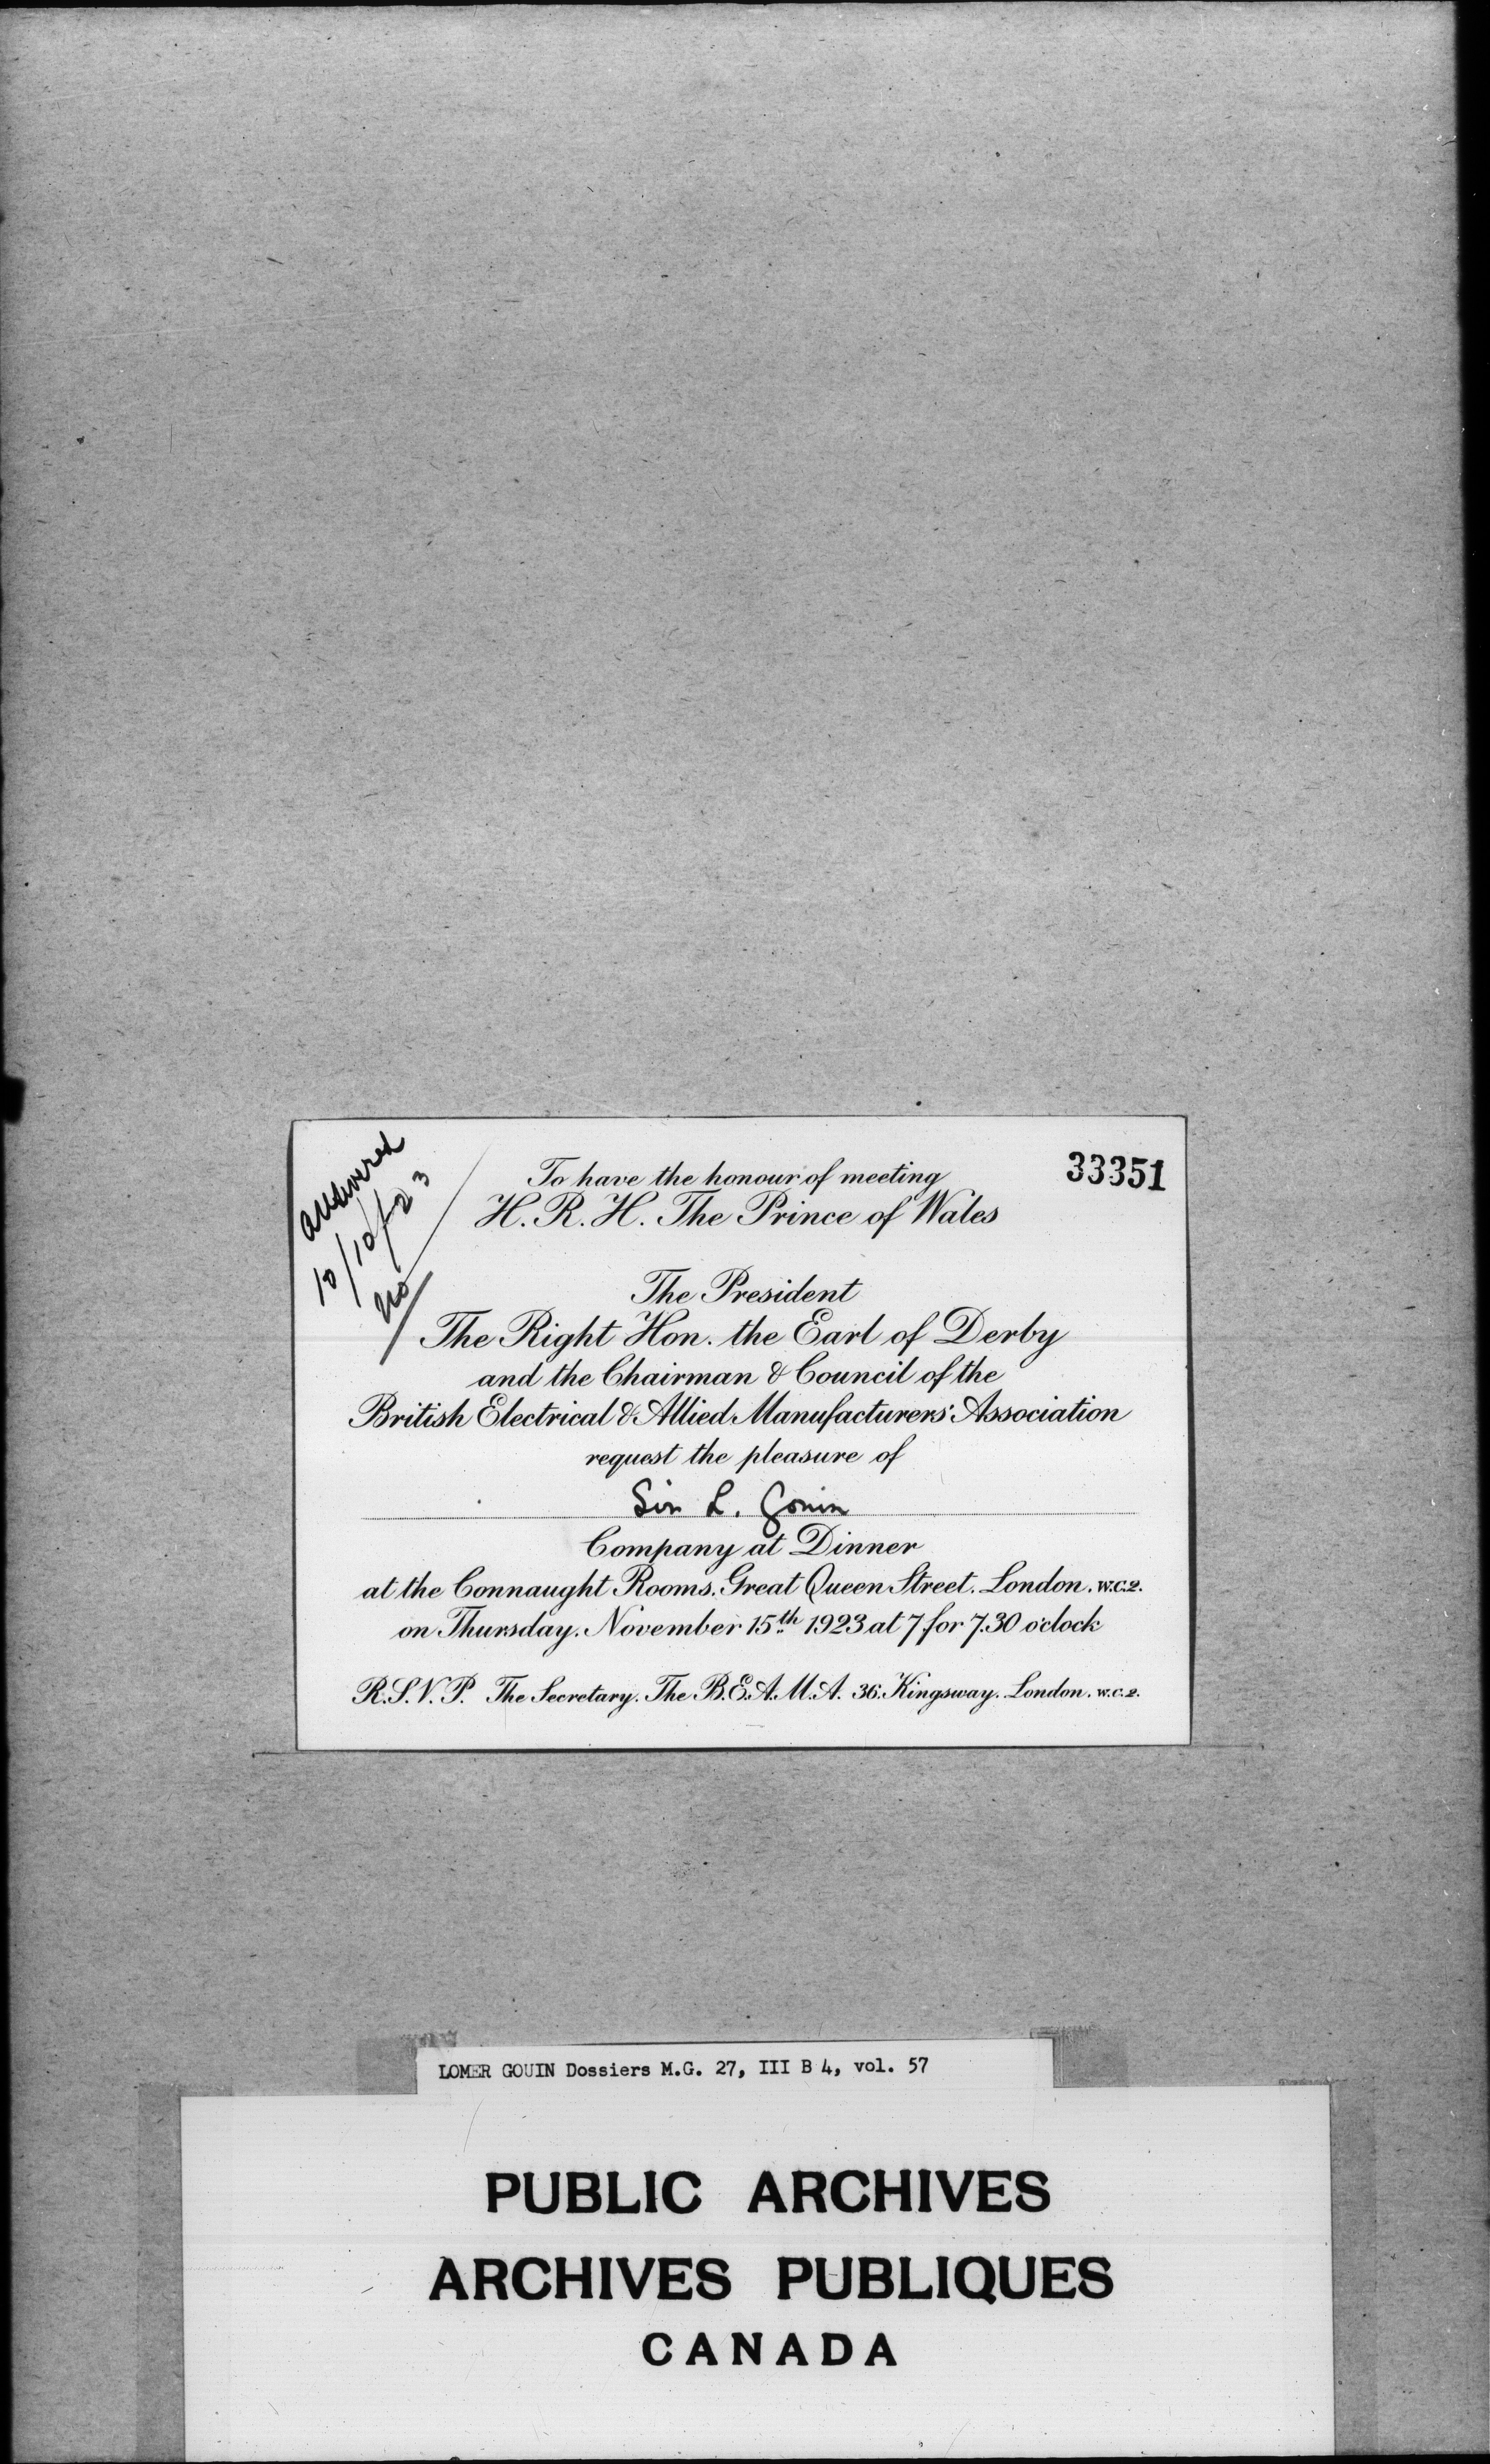 answered
10/10/23
no
33351
To have the honour of meeting
H. R. H. The Prince of Wales
The President
The Right Hon. the Earl of Derby
and the Chairman & Council of the
British Electrical & Allied Manufacturers' Association
request the pleasure of
Sir L. Gouin
Company at Dinner
at the Connaught Rooms. Great Queen Street. London. W.C.2.
on Thursday. November 15th 1923 at 7 for 7.30 o'clock
R.S.V.P. The Secretary. The B.E.A.M.A. 36. Kingsway. London. W.C.2.
LOMER GOUIN Dossiers M.G. 27, III B 4, vol. 57
PUBLIC ARCHIVES
ARCHIVES PUBLIQUES
CANADA